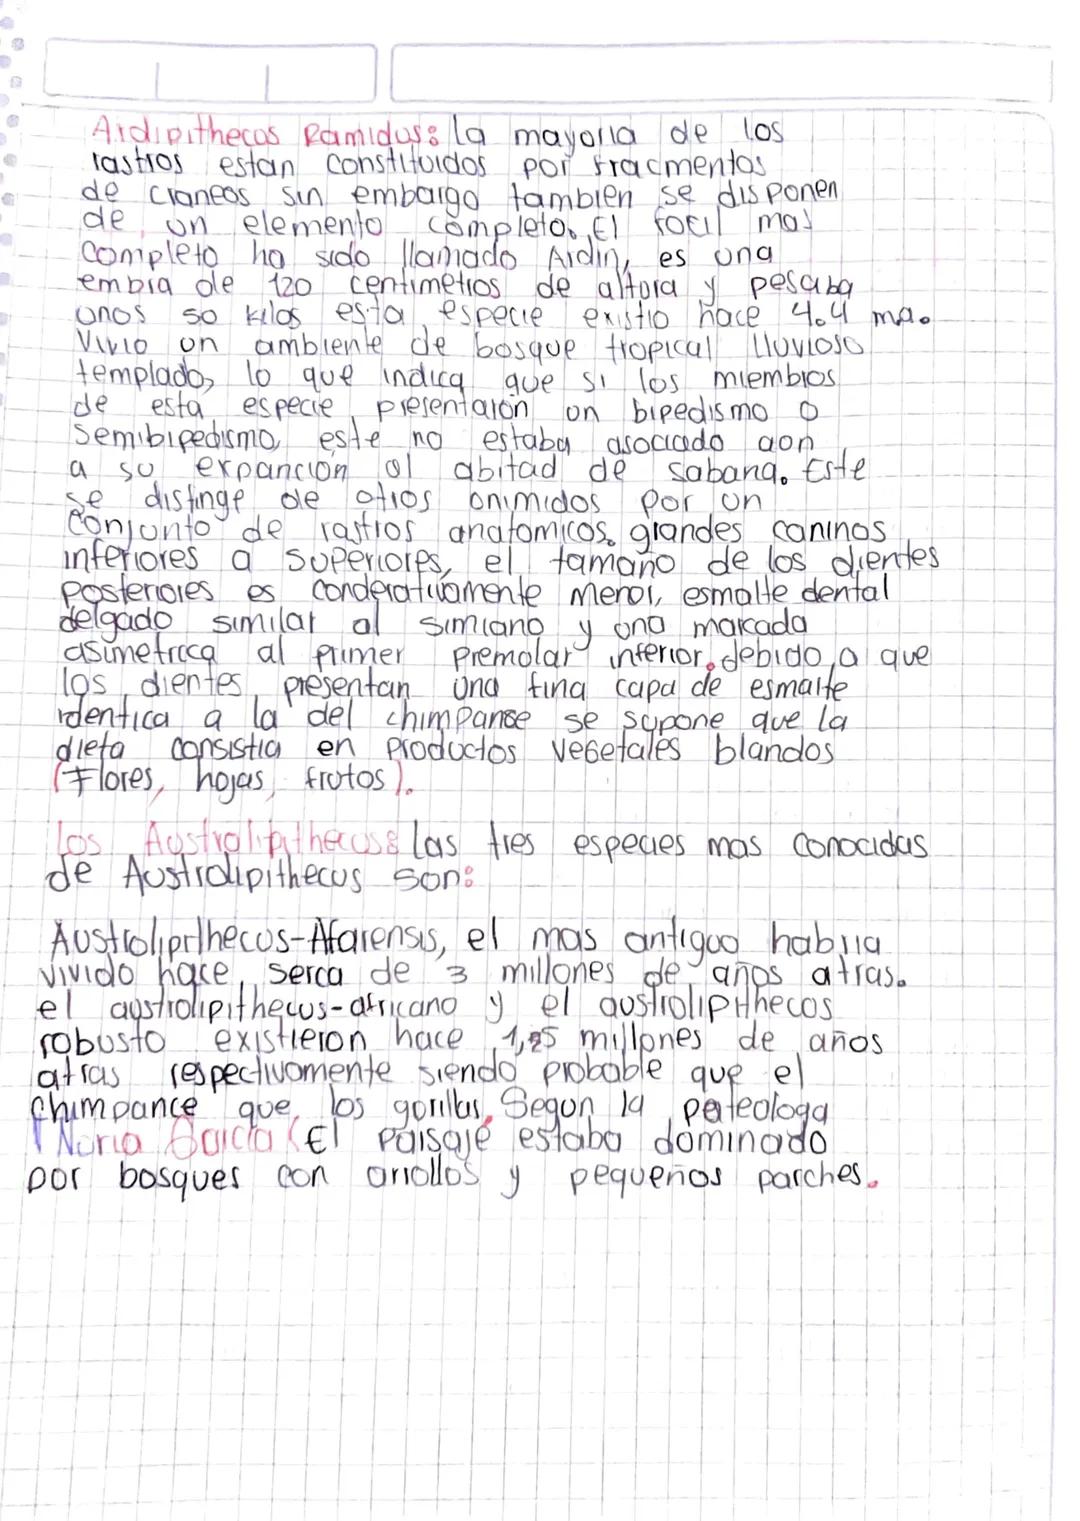 Ardipithecos Ramidus: la mayoria de los
rastros estan constituidos por fracmentos
de craneos sin embargo tambien se disponen
de un elemento completo. El focil mas
completo ha sido llamado Ardin, es una
embra de 120 centimetros de altura y pesaba
unos 50 kilos esta especie existio hace 4.4 ma.
Vivio un ambiente de bosque tropical lluvioso
templado, lo que indica que si los miembros
de esta especie presentaron un bipedismo o
semibipedismo, este no estaba asociado aon
a su expancion al abitad de sabana. Este
se distinge de otros onimidos por un
conjunto de rastros anatomicos. grandes caninos
inferiores a superiores, el tamaño de los dientes
posteriores es conderativamente menor, esmalte dental
delgado similar al simiano y una marcada
asimetrica al primer premolar inferior, debido a que
los dientes presentan una fina capa de esmalte
identica a la del chimpanse se supone que la
dieta consistia en productos vegetales blandos
(Flores, hojas, frutos).
Los Austrolipithecus: las tres especies mas conocidas
de Austrolipithecus son:
Austrolipithecus-Afarensis, el mas antiguo habria
vivido hace, serca de 3 millones de años atras.
el austrolipithecus-africano y el austrolipithecos
robusto existieron hace 1,25 millones de años
atras respectivamente siendo probable que el
chimpance que los gorillas. Segun la pateologa
Nuria Garcia (El paisaje estaba dominado
por bosques con arrollos y pequeños parches.